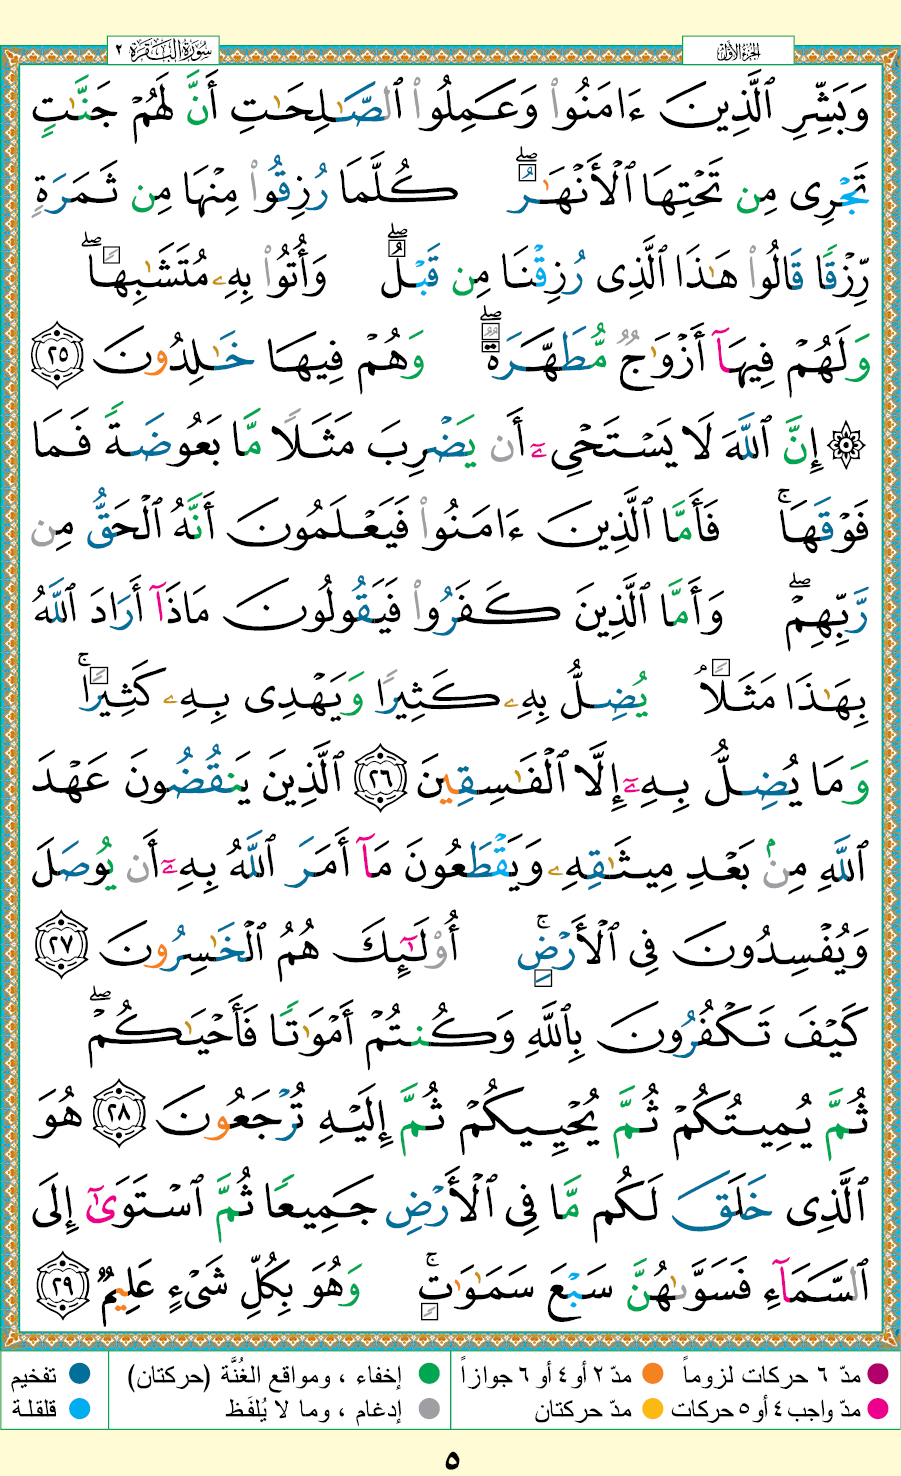 سُورَةُ البَقَرَةِ ٢
الجُزءُ الأوَّلُ
وَبَشِّرِ ٱلَّذِينَ ءَامَنُوا۟ وَعَمِلُوا۟ ٱلصَّـٰلِحَـٰتِ أَنَّ لَهُمْ جَنَّـٰتٍ
تَجْرِى مِن تَحْتِهَا ٱلْأَنْهَـٰرُ ۖ كُلَّمَا رُزِقُوا۟ مِنْهَا مِن ثَمَرَةٍ
رِّزْقًا قَالُوا۟ هَـٰذَا ٱلَّذِى رُزِقْنَا مِن قَبْلُ ۖ وَأُتُوا۟ بِهِۦ مُتَشَـٰبِهًا ۖ
وَلَهُمْ فِيهَآ أَزْوَٰجٌ مُّطَهَّرَةٌ ۖ وَهُمْ فِيهَا خَـٰلِدُونَ ٢٥
۞ إِنَّ ٱللَّهَ لَا يَسْتَحْىِۦٓ أَن يَضْرِبَ مَثَلًا مَّا بَعُوضَةً فَمَا
فَوْقَهَا ۚ فَأَمَّا ٱلَّذِينَ ءَامَنُوا۟ فَيَعْلَمُونَ أَنَّهُ ٱلْحَقُّ مِن
رَّبِّهِمْ ۖ وَأَمَّا ٱلَّذِينَ كَفَرُوا۟ فَيَقُولُونَ مَاذَآ أَرَادَ ٱللَّهُ
بِهَـٰذَا مَثَلًا ۘ يُضِلُّ بِهِۦ كَثِيرًا وَيَهْدِى بِهِۦ كَثِيرًا ۚ
وَمَا يُضِلُّ بِهِۦٓ إِلَّا ٱلْفَـٰسِقِينَ ٢٦ ٱلَّذِينَ يَنقُضُونَ عَهْدَ
ٱللَّهِ مِنۢ بَعْدِ مِيثَـٰقِهِۦ وَيَقْطَعُونَ مَآ أَمَرَ ٱللَّهُ بِهِۦٓ أَن يُوصَلَ
وَيُفْسِدُونَ فِى ٱلْأَرْضِ ۚ أُو۟لَـٰٓئِكَ هُمُ ٱلْخَـٰسِرُونَ ٢٧
كَيْفَ تَكْفُرُونَ بِٱللَّهِ وَكُنتُمْ أَمْوَٰتًا فَأَحْيَـٰكُمْ ۖ
ثُمَّ يُمِيتُكُمْ ثُمَّ يُحْيِيكُمْ ثُمَّ إِلَيْهِ تُرْجَعُونَ ٢٨ هُوَ
ٱلَّذِى خَلَقَ لَكُم مَّا فِى ٱلْأَرْضِ جَمِيعًا ثُمَّ ٱسْتَوَىٰٓ إِلَى
ٱلسَّمَآءِ فَسَوَّىٰهُنَّ سَبْعَ سَمَـٰوَٰتٍ ۚ وَهُوَ بِكُلِّ شَىْءٍ عَلِيمٌ ٢٩
مدّ ٦ حركات لزوماً مدّ ٢ أو ٤ أو ٦ جوازاً إخفاء ، ومواقع الغُنَّة (حركتان) تفخيم
مدّ واجب ٤ أو ٥ حركات مدّ حركتان إدغام ، وما لا يُلفَظ قلقلة
٥